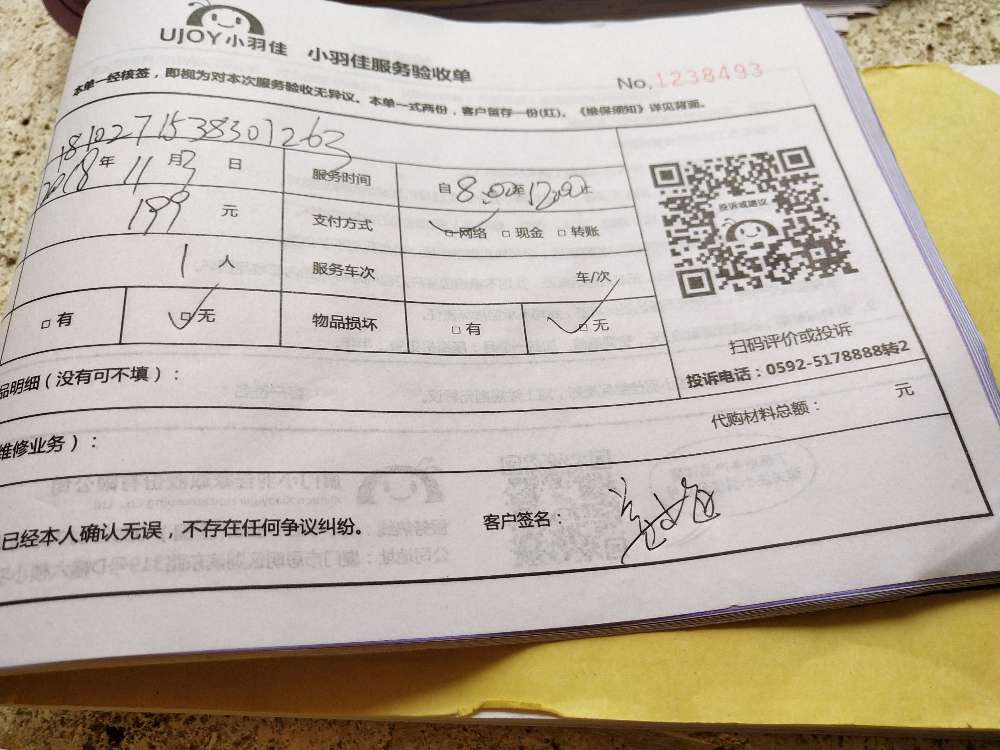 UJOY小羽佳 小羽佳服务验收单
No.1238493
本单一经核签，即视为对本次服务验收无异议。本单一式两份，客户留存一份(红)。《维保须知》详见背面。
1810271538301263
2018年11月3日 服务时间 自8:00至12:00止
199元 支付方式 □网络 □现金 □转账
投诉或建议
1人 服务车次 车/次
□有 □无 物品损坏 □有 □无
扫码评价或投诉
投诉电话：0592-5178888转2
品明细（没有可不填）：
代购材料总额： 元
维修业务）：
已经本人确认无误，不存在任何争议纠纷。 客户签名：